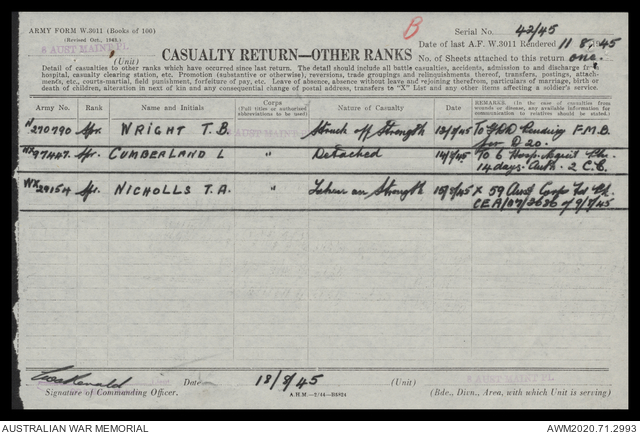 ARMY FORM W.3011 (Books of 100)
(Revised Oct., 1943.)
B
Serial No. 42/45
8 AUST MAINT PL.
(Unit)
Date of last A.F. W.3011 Rendered 11.8.1945
CASUALTY RETURN—OTHER RANKS
No. of Sheets attached to this return one.
Detail of casualties to other ranks which have occurred since last return. The detail should include all battle casualties, accidents, admission to and discharge from
hospital, casualty clearing station, etc. Promotion (substantive or otherwise), reversions, trade groupings and relinquishments thereof, transfers, postings, attach-
ments, etc., courts-martial, field punishment, forfeiture of pay, etc. Leave of absence, absence without leave and rejoining therefrom, particulars of marriage, birth or
death of children, alteration in next of kin and any consequential change of postal address, transfers to "X" List and any other items affecting a soldier's service.
Army No. Rank Name and Initials Corps (Full titles or authorised abbreviations to be used) Nature of Casualty Date of Casualty REMARKS. (In the case of casualties from wounds or disease, any available information for communication to relatives should be stated.)
N270790 Spr. WRIGHT T.B. Struck off Strength 12/8/45 To Pending F.M.B.
D 20.
NX97447. Spr. CUMBERLAND L " Detached 14/8/45 To 6
14 days. Auth. 2 C.E.
WX29154 Spr. NICHOLLS T.A. " Taken on Strength 15/8/45 X 59 Aust Corps Fd Pk.
CEA/107/2620 of 9/8/45
Signature of Commanding Officer.
Date 18/8/45
A.H.M.—2/44—B1824
(Unit) 8 AUST MAINT PL.
(Bde., Divn., Area, with which Unit is serving)
AUSTRALIAN WAR MEMORIAL
AWM2020.71.2993